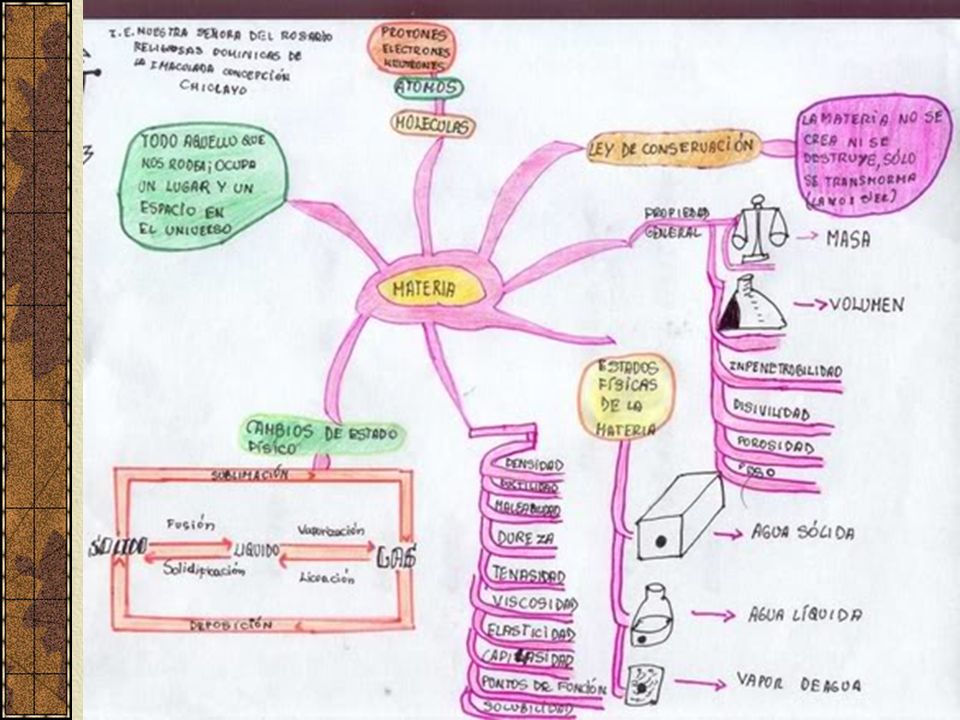 I.E. NUESTRA SEÑORA DEL ROSARIO
RELIGIOSAS DOMINICAS DE
LA IMACOLADA CONCEPCIÓN
CHICLAYO
PROTONES
ELECTRONES
NEUTRONES
ATOMOS
MOLECULAS
TODO AQUELLO QUE
NOS RODEA; OCUPA
UN LUGAR Y UN
ESPACIO EN
EL UNIVERSO
LEY DE CONSERVACIÓN
LA MATERIA NO SE
CREA NI SE
DESTRUYE, SÓLO
SE TRANSMORMA
MATERIA
PROPIEDAD
GENERAL
MASA
VOLUMEN
INPENETROBILIDAD
DISIVILIDAD
POROSIDAD
PESO
ESTADOS
FÍSICAS
DE LA
MATERIA
AGUA SÓLIDA
AGUA LÍQUIDA
VAPOR DE AGUA
CAMBIOS DE ESTADO
FÍSICO
SUBLIMACIÓN
Fusión
Vaporización
SOLIDO
LIQUIDO
GAS
Solidificación
Licuación
DEPOSICIÓN
DENSIDAD
DUREZA
TENASIDAD
VISCOSIDAD
ELASTICIDAD
PUNTOS DE FONCIÓN
SOLUBILIDAD